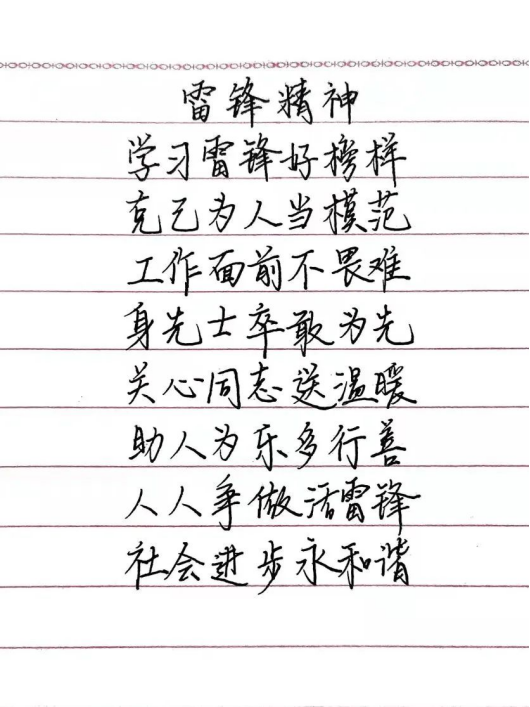 雷锋精神
学习雷锋好榜样
克己为人当模范
工作面前不畏难
身先士卒敢为先
关心同志送温暖
助人为乐多行善
人人争做活雷锋
社会进步永和谐